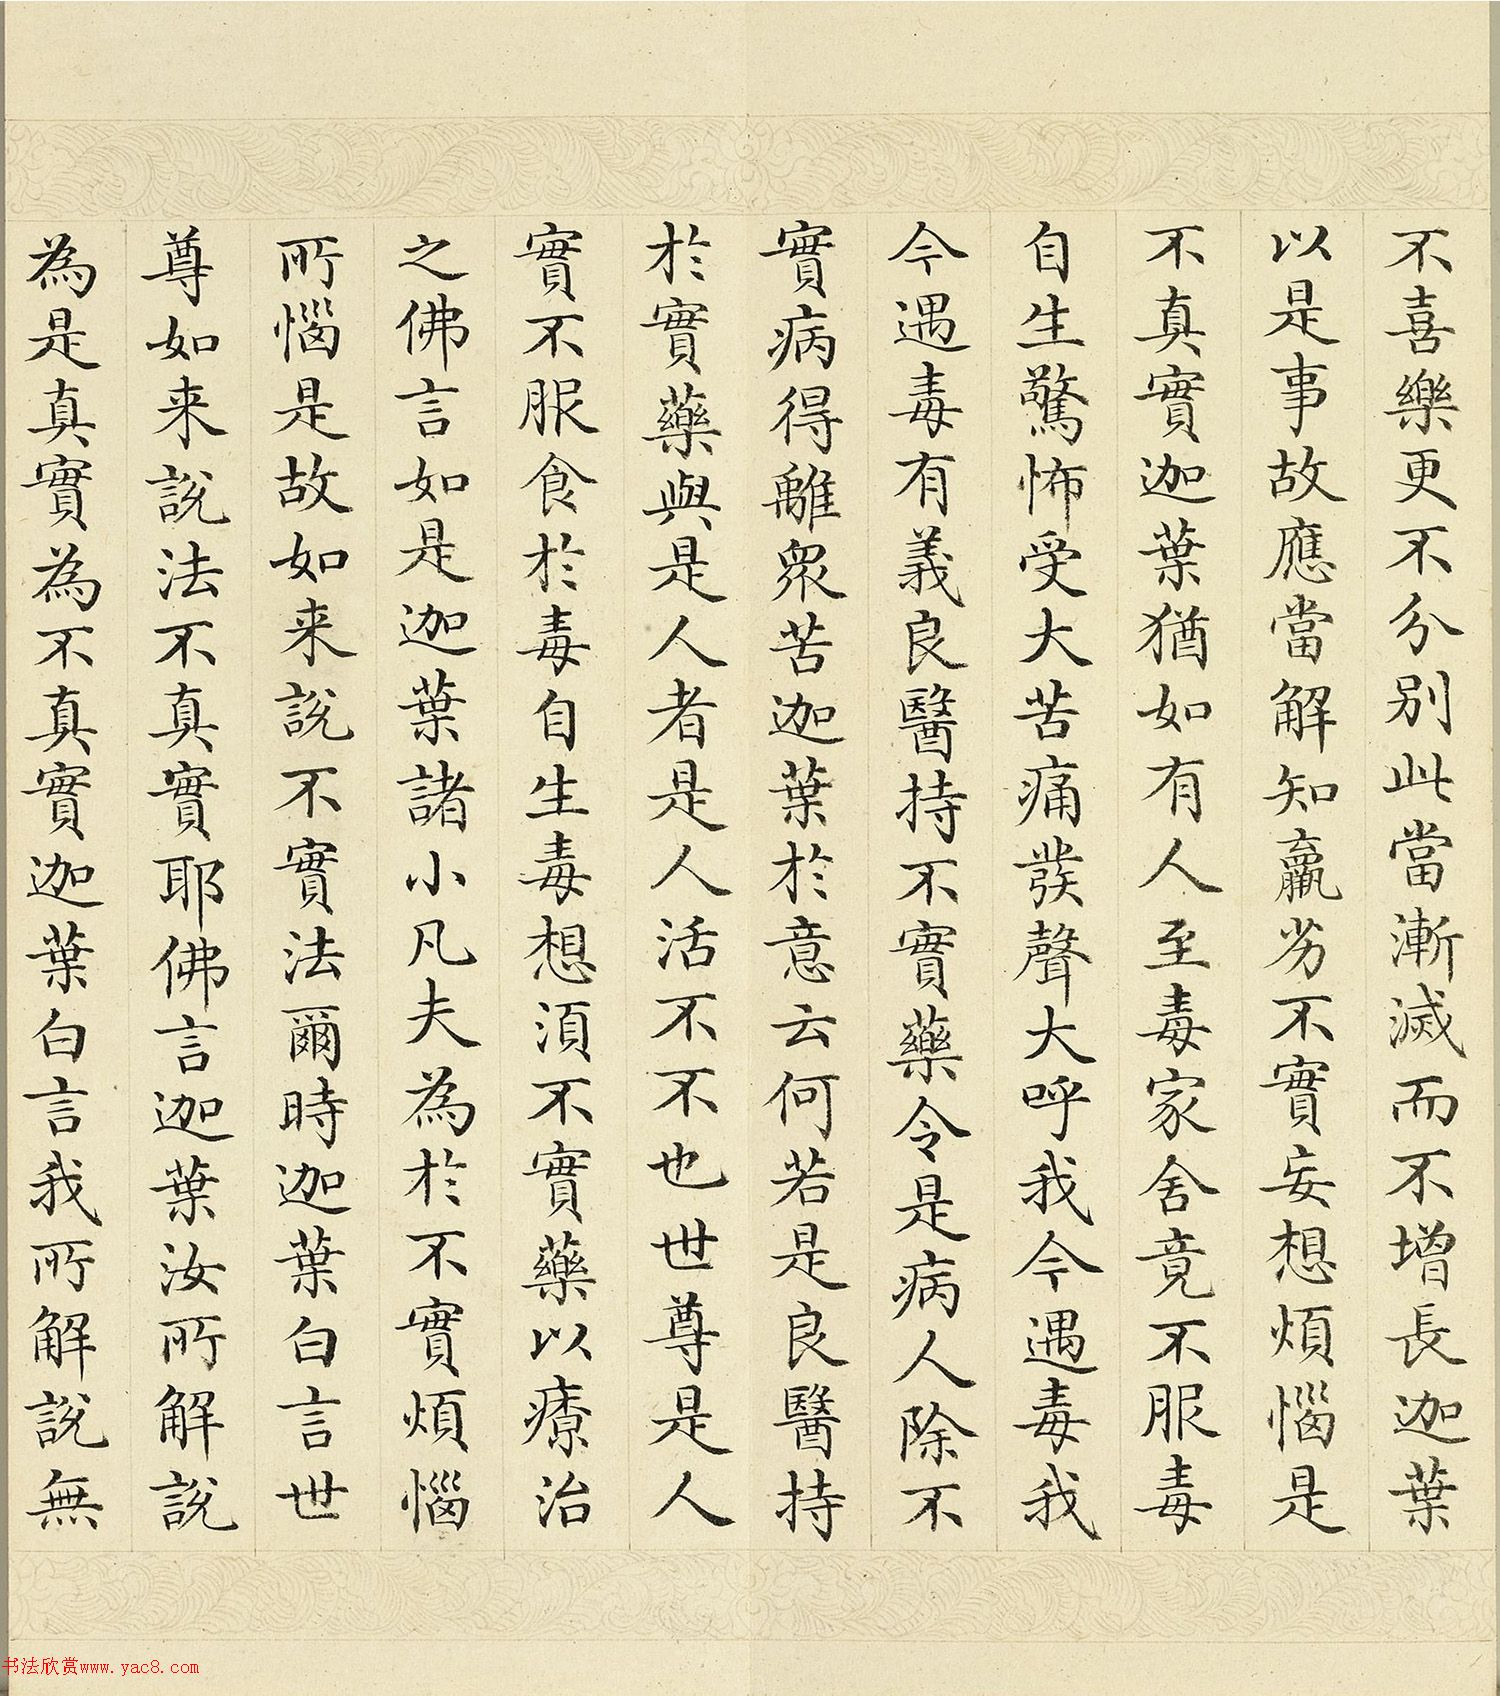 不喜樂更不分別此當漸滅而不增長迦葉
以是事故應當解知羸劣不實妄想煩惱是
不真實迦葉猶如有人至毒家舍竟不服毒
自生驚怖受大苦痛發聲大呼我今遇毒我
今遇毒有義良醫持不實藥令是病人除不
實病得離眾苦迦葉於意云何若是良醫持
於實藥與是人者是人活不不也世尊是人
實不服食於毒自生毒想須不實藥以療治
之佛言如是迦葉諸小凡夫為於不實煩惱
所惱是故如来說不實法爾時迦葉白言世
尊如来說法不真實耶佛言迦葉汝所解說
為是真實為不真實迦葉白言我所解說無
书法欣赏www.yac8.com